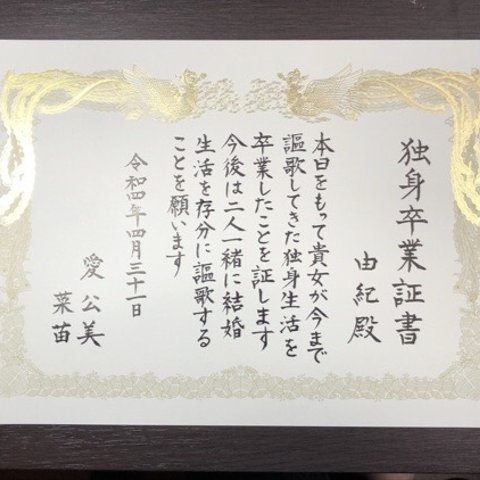 独身卒業証書
由紀殿
本日をもって貴女が今まで
謳歌してきた独身生活を
卒業したことを証します
今後は二人一緒に結婚
生活を存分に謳歌する
ことを願います
令和四年四月三十一日
愛 公美
菜苗